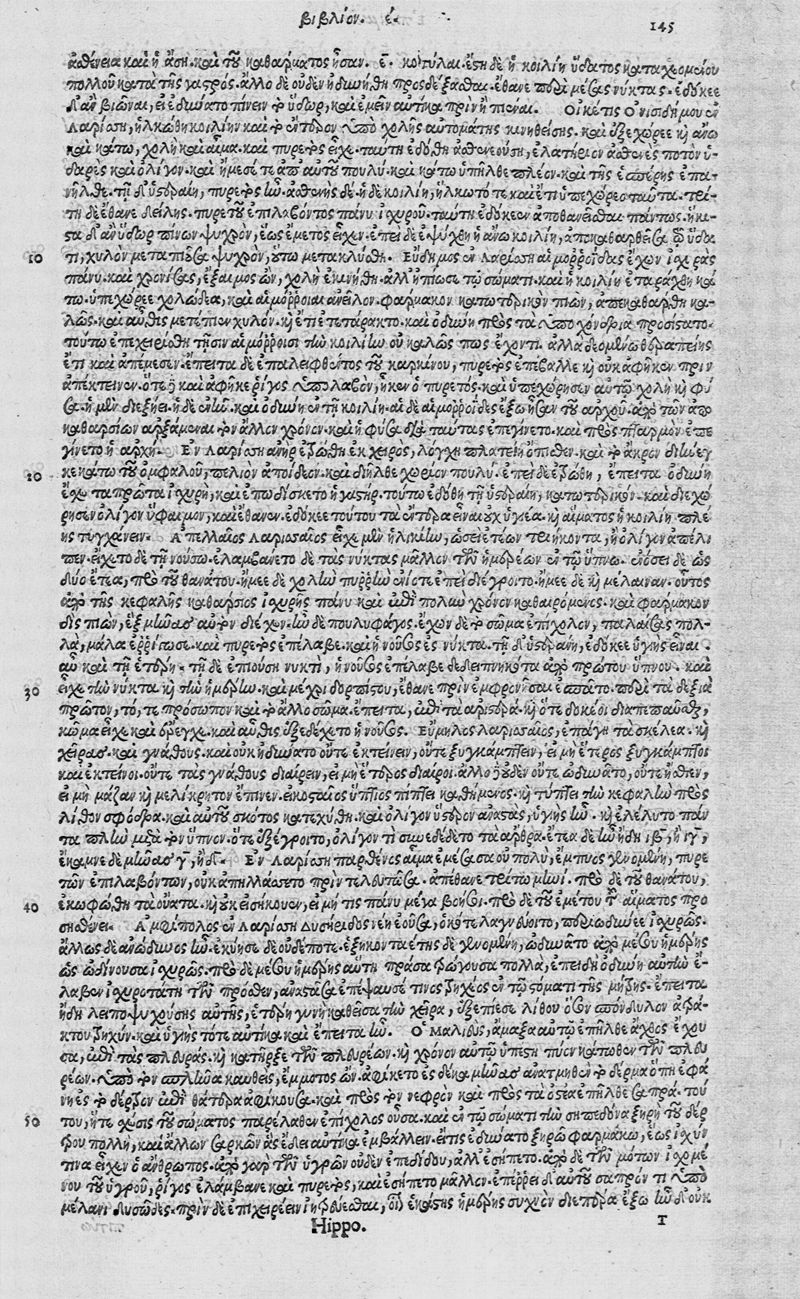 βιβλίον. έ.
145
ἀσθένεια καὶ ἡ ἄση. καὶ τοῦ καθάρματος ἦσαν. ε. κοτύλαι. ἔστη δὲ ἡ κοιλίη ὕδατος καταχεομένου
πολλοῦ κατὰ τῆς γαστρός. ἄλλο δὲ οὐδὲν ἠδυνήθη προσδέξασθαι. ἔθανε περὶ μέσας νύκτας. ἐδόκεε
δ' ἂν βιῶναι, εἰ ἐδύνατο πίνειν τὸ ὕδωρ, καὶ ἐμεῖν αὐτίκα πρὶν ἢ πιέναι. Οἰκέτις Ὀνισιδήμου ἐν
Λαρίσῃ, ἡλκώθη κοιλίην καὶ τὸ ἔντερον ὑπὸ χολῆς αὐτομάτης κινηθείσης. καὶ ἐξεχώρεε καὶ ἄνω
καὶ κάτω, χολὴ καὶ αἷμα. καὶ πυρετὸς εἶχε. ταύτῃ ἐδόθη ἀσθενεούσῃ, ἐλατήριον ἀσθενὲς ποτὸν ὑ-
δαρὲς καὶ ὀλίγον. καὶ ἤμεσέ τε ἀπ' αὐτοῦ πουλύ. καὶ κάτω ὑπῆλθε πλέον. καὶ τῆς ἑσπέρης ἐπα-
νῆλθε. τῇ δ' ὑστεραίῃ, πυρετὸς ἦν. ἀσθενὴς δέ. ἡ δὲ κοιλίη, ἥλκωτό τε καὶ ἔτι ὑπεχώρεε ταῦτα. τρί-
τῃ δὲ ἔθανε δείλης. πυρετοῦ ἐπιλαβόντος πάνυ ἰσχυροῦ. ταύτῃ ἐδόκεεν ἀποθανεῖσθαι πάντως. ἥκι-
στα δ' ἂν ὕδωρ πίνων ψυχρὸν, ἕως ἔμετος εἶχεν. ἐπεὶ δὲ ἐψύχθη ἡ ἄνω κοιλίη, ἀποκαθαρθεῖσα τῷ ὕδα
10 τι, χυλὸν μεταπίσαι ψυχρὸν, οὕτω μετακλύσαι. Εὔδημος ἐν Λαρίσῃ αἱμορροΐδας ἔχων ἰσχυρὰς
πάνυ. καὶ χρονίσας, ἔξαιμος ὢν, χολὴ ἐκινήθη. ἀλλ' ἠπίως τῷ σώματι. καὶ ἡ κοιλίη ἐταράχθη κά
τω. ὑπεχώρεε χολώδεα, καὶ αἱμόρροιαι ἀνεῖλον. φάρμακον κατωτερικὸν πιὼν, ἀπεκαθάρθη κα-
λῶς. καὶ αὖθις μετέπιεν χυλόν. καὶ ἔτι ἐτετάρακτο. καὶ ὀδύνη πρὸς τὰ ὑποχόνδρια προσίστατο.
τούτῳ ἐπεχειρίσθη τῇσιν αἱμόρροισι τὴν κοιλίην οὐ καλῶς πως ἔχοντι. ἀλλὰ δεομένῳ θεραπείης
ἔτι καὶ ἀπέμεσεν. ἔπειτα δὲ ἐπαλειφθέντος τοῦ καρκίνου, πυρετὸς ἐπέβαλλε καὶ οὐκ ἀφῆκεν πρὶν
ἀπέκτεινεν. ὅτε δὲ καὶ ἀφῆκε ῥῖγος ὑπολαβὸν, ἧκεν ὁ πυρετός. καὶ ὑπεχώρησεν αὐτῷ χολὴ καὶ φῦ
σα. ἡ μὲν διεξῄει. ἡ δὲ ἐνῆν. καὶ ὀδύνη ἐν τῇ κοιλίῃ. αἱ δὲ αἱμορροΐδες ἔξω ἦσαν τοῦ ἀρχοῦ. ἀπὸ τῶν ἀπο
καθαρσίων ἀρξάμεναι τὸν ἄλλον χρόνον. καὶ ἡ φῦσα διὰ ταύτας ἐπεγίνετο. καὶ πρὸς πταρμὸν ἐπε
γίνετο ἡ ἀρχή. Ἐν Λαρίσῃ ἀνὴρ ἐβώθη ἐκ χειρὸς, λόγχῃ πλατείῃ ὄπισθεν. καὶ τὸ ἄκρον διήνεγ
20 κε κάτω τοῦ ὀμφαλοῦ, πελιὸν ἀποίδεον. καὶ διῆλθε χωρίον πουλύ. ἐπεὶ δὲ ἐβώθη, ἔπειτα ὀδύνη
ἔσχε τὰ πρῶτα ἰσχυρὴ, καὶ ἐπῳδίσκετο ἡ γαστήρ. τούτῳ ἐδόθη τῇ ὑστεραίῃ, κατωτερικόν. καὶ διεχώ
ρησεν ὀλίγον ὕφαιμον, καὶ ἔθανεν. ἐδόκεε τούτου τὰ ἔντερα εἶναι οὐχ ὑγιέα. καὶ αἵματος ἡ κοιλίη πλέη
της τυγχάνειν. Ἀπελλαῖος Λαρισαῖος εἶχε μὲν ἡλικίην, ὡσεὶ ἐτέων τριήκοντα, ἢ ὀλίγον ἀπέλι
πεν. εἴχετο δὲ τῇ νούσῳ. ἐλαμβάνετο δὲ τὰς νύκτας μᾶλλον τῶν ἡμερέων ἐν τῷ ὕπνῳ. ἐνόσει δὲ ὡς
δύο ἔτεα, πρὸ τοῦ θανάτου. ἤμεε δὲ χολὴν πυρρὴν ἐνίοτε ἐπεὶ διέγροιτο. ἤμεε δὲ καὶ μέλαιναν. οὗτος
ἀπὸ τῆς κεφαλῆς καθάρσιος ἰσχυρῆς πάνυ καὶ ἐπὶ πολὺν χρόνον καθαιρόμενος. καὶ φάρμακον
δὶς πιὼν, ἓξ μῆνας αὐτὸν διέχον. ἦν δὲ πουλυφάγος. ἔχων δὲ τὸ σῶμα ἐπίχολον, παλαίσας πολ-
λὰ, μάλα ἐρρίγωσε. καὶ πυρετὸς ἐπέλαβε. καὶ ἡ νοῦσος ἐς νύκτα. τῇ δ' ὑστεραίῃ, ἐδόκεε ὑγιὴς εἶναι.
αὐ καὶ τῇ ἑτέρῃ. τῇ δὲ ἐπιούσῃ νυκτὶ, ἡ νοῦσος ἐπέλαβε δεδειπνηκότα ἀπὸ πρώτου ὕπνου. καὶ
30 εἶχε τὴν νύκτα καὶ τὴν ἡμέρην. καὶ μέχρι δορπιστοῦ, ἔθανε πρὶν ἐμφρονῆσαι ἐσπᾶτο. περὶ τὰ δεξιὰ
πρῶτον, τό, τε πρόσωπον καὶ τὸ ἄλλο σῶμα. ἔπειτα, ἐπὶ τὰ ἀριστερά. καὶ ὅτε δοκέοι διαπεπαῦσθαι,
κῶμα εἶχε καὶ ὤρεγχε. καὶ αὖθις ἐξεδέχετο ἡ νοῦσος. Εὔμηλος Λαρισαῖος, ἐπάγη τὰ σκέλεα. καὶ
χεῖρας. καὶ γνάθους. καὶ οὐκ ἠδύνατο οὔτε ἐκτείνειν, οὔτε ξυγκάμπτειν, εἰ μὴ ἕτερος ξυγκάμπτοι
καὶ ἐκτείνοι. οὔτε τὰς γνάθους διαίρειν, εἰ μὴ ἕτερος διαίροι. ἄλλο δ' οὐδὲν οὔτε ὠδυνᾶτο, οὔτε ἤσθιεν,
εἰ μὴ μᾶζαν καὶ μελίκρητον ἔπινεν. εἰκοσταῖος ὕπτιος πίπτει καθήμενος. καὶ τύπτει τὴν κεφαλὴν πρὸς
λίθον σφόδρα. καὶ αὐτοῦ σκότος κατεχύθη. καὶ ὀλίγον ὕστερον ἀναστὰς, ὑγιὴς ἦν. καὶ ἐλέλυτο πάν
τα. πλὴν μετὰ τὸν ὕπνον. ὅτε ἐξέγροιτο, ὀλίγον τι συνεδέδετο τὰ ἄρθρα. ἔτεα δὲ ἦν ἤδη ιβ, ἢ ιγ,
ἔκαμνε δὲ μῆνας γ, ἢ δ. Ἐν Λαρίσῃ παρθένος αἷμα ἐμέσασα οὐ πολὺ, ἔμπυος γενομένη, πυρε
τῶν ἐπιλαβόντων, οὐκ ἀπηλλάσσετο πρὶν τελευτῶσα. ἀπέθανε τρίτῳ μηνί. πρὸ δὲ τοῦ θανάτου,
40 ἐκωφώθη τὰ οὔατα. καὶ οὐκ εἰσήκουεν, εἰ μή τις πάνυ μέγα βοήσοι. πρὸ δὲ τοῦ ἐμέτου τοῦ αἵματος προ
σησθένει. Ἀμφίπολος ἐν Λαρίσῃ Δυσήριδος νέη ἐοῦσα, ὁκότε λαγνεύοιτο, περιωδύνεε ἰσχυρῶς.
ἄλλως δὲ ἀνώδυνος ἦν. ἐκύησε δὲ οὐδέποτε. ἑξηκονταέτης δὲ γενομένη, ὠδυνᾶτο ἀπὸ μέσου ἡμέρης
ὡς ὠδίνουσα ἰσχυρῶς. πρὸ δὲ μέσου ἡμέρης αὕτη πράσα τρώγουσα πολλὰ, ἐπειδὴ ὀδύνη αὐτὴν ἔ-
λαβεν ἰσχυροτάτη τῶν πρόσθεν, ἀναστᾶσα ἐπέψαυσέ τινος τρηχέος ἐν τῷ στόματι τῆς μήτρης. ἔπειτα
ἤδη λειποψυχούσης αὐτῆς, ἑτέρη γυνὴ καθεῖσα τὴν χεῖρα, ἐξεπίεσε λίθον ὅσον σπόνδυλον ἀτρά-
κτου τρηχύν. καὶ ὑγιὴς τότε αὐτίκα καὶ ἔπειτα ἦν. Ὁ Μαλιεὺς, ἅμαξα αὐτῷ ἐπῆλθε ἄχθος ἔχου
σα, ἐπὶ τὰς πλευράς. καὶ κατῆρξε τῶν πλευρέων. καὶ χρόνον αὐτῷ ὑπέστη πύον κάτωθεν τῶν πλευ
ρέων. ὑπὸ τὸν σπλῆνα καυθεὶς, ἔμμοτος ὢν. ἀφίκετο ἐς δέκα μῆνας ἀνατμηθὲν τὸ δέρμα ὀπὴ ἐφά
νη ἐς τὸ δέρτρον ἐπὶ θάτερα ἀφίκουσα. καὶ πρὸς τὸν νεφρὸν καὶ πρὸς τὰ ὀστέα ἐπῆλθε σαπρά. τού
50 του, ἥ τε σχέσις τοῦ σώματος παρέλαθεν ἐπίχολος οὖσα. καὶ ἐν τῷ σώματι τὴν σηπεδόνα ξηρὴ τοῦ δέρ
τρου πολλὴ, καὶ ἄλλων σαρκῶν ἃς ἔδει αὐτίκα ἐμβάλλειν. εἴ τις ἐδύνατο ξηρῷ φαρμάκῳ, ἕως ἰσχύν
τινα εἶχεν ὁ ἄνθρωπος. ἀπὸ γὰρ τῶν ὑγρῶν οὐδὲν ἐπεδίδου, ἀλλ' ἐσήπετο. ἀπὸ δὲ τῶν μότων ἰσχομέ
νου τοῦ ὑγροῦ, ῥῖγος ἐλάμβανε καὶ πυρετὸς, καὶ ἐσήπετο μᾶλλον. ἐπέρρει δ' αὐτοῦ σαπρόν τι ὑπὸ
μέλαν. δυσῶδες. πρὶν δὲ ἐπιχειρέειν ἰητρεύεσθαι, οἷον ἑκάστης ἡμέρης συχνὸν διεπέρα ἔξω ἦν δ' οὐκ
Hippo.
T